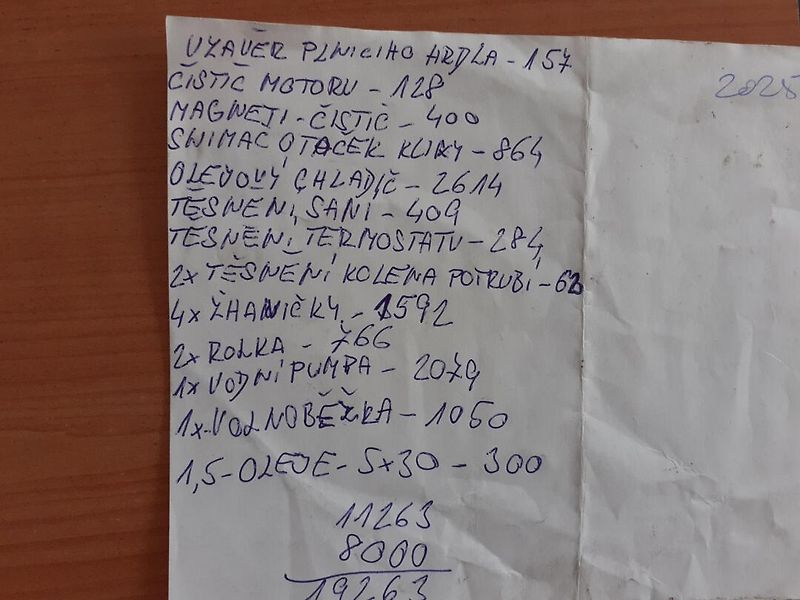 UZAVĚR PLNICIHO HRDLA - 157
2025
ČISTIČ MOTORU - 128
MAGNETI - ČISTIČ - 400
SNIMAČ OTAČEK KLIKY - 864
OLEJOVÝ CHLADIČ - 2614
TĚSNĚNÍ SANÍ - 409
TĚSNĚNÍ TERMOSTATU - 284
2x TĚSNĚNÍ KOLENA POTRUBÍ -
4x ŽHAVIČKY - 1592
2x ROLKA - 766
1x VODNÍ PUMPA - 2079
1x VOLNOBĚŽKA - 1050
1,5 - OLEJE - 5x30 - 300
11263
8000
19263